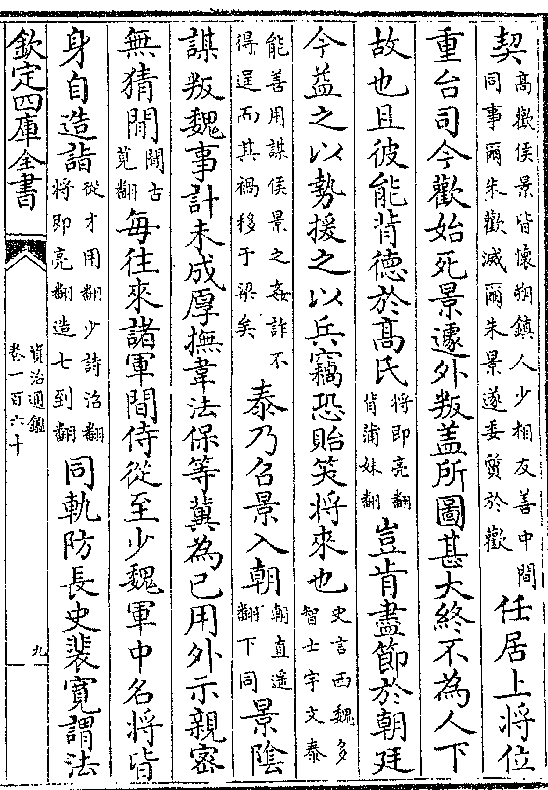 契高歡侯景皆懷朔鎮人少相友善中間同事爾朱歡滅爾朱景遂委質於歡任居上將位
重台司今歡始死景遽外叛盖所圖甚大終不為人下
故也且彼能背德於髙氏將即亮翻背蒲妹翻豈肯盡節於朝廷
今益之以勢援之以兵竊恐貽笑將來也史言西魏多智士宇文泰
能善用謀侯景之姦詐不得逞而其禍移于梁矣泰乃召景入朝朝直遥翻下同景隂
謀叛魏事計未成厚撫韋法保等冀為己用外示親密
無猜間間古莧翻每往來諸軍間侍從至少魏軍中名將皆
身自造詣從才用翻少詩沼翻將即亮翻造七到翻同軌防長史裴寛謂法
欽定四庫全書
資治通鑑
卷一百六十
九